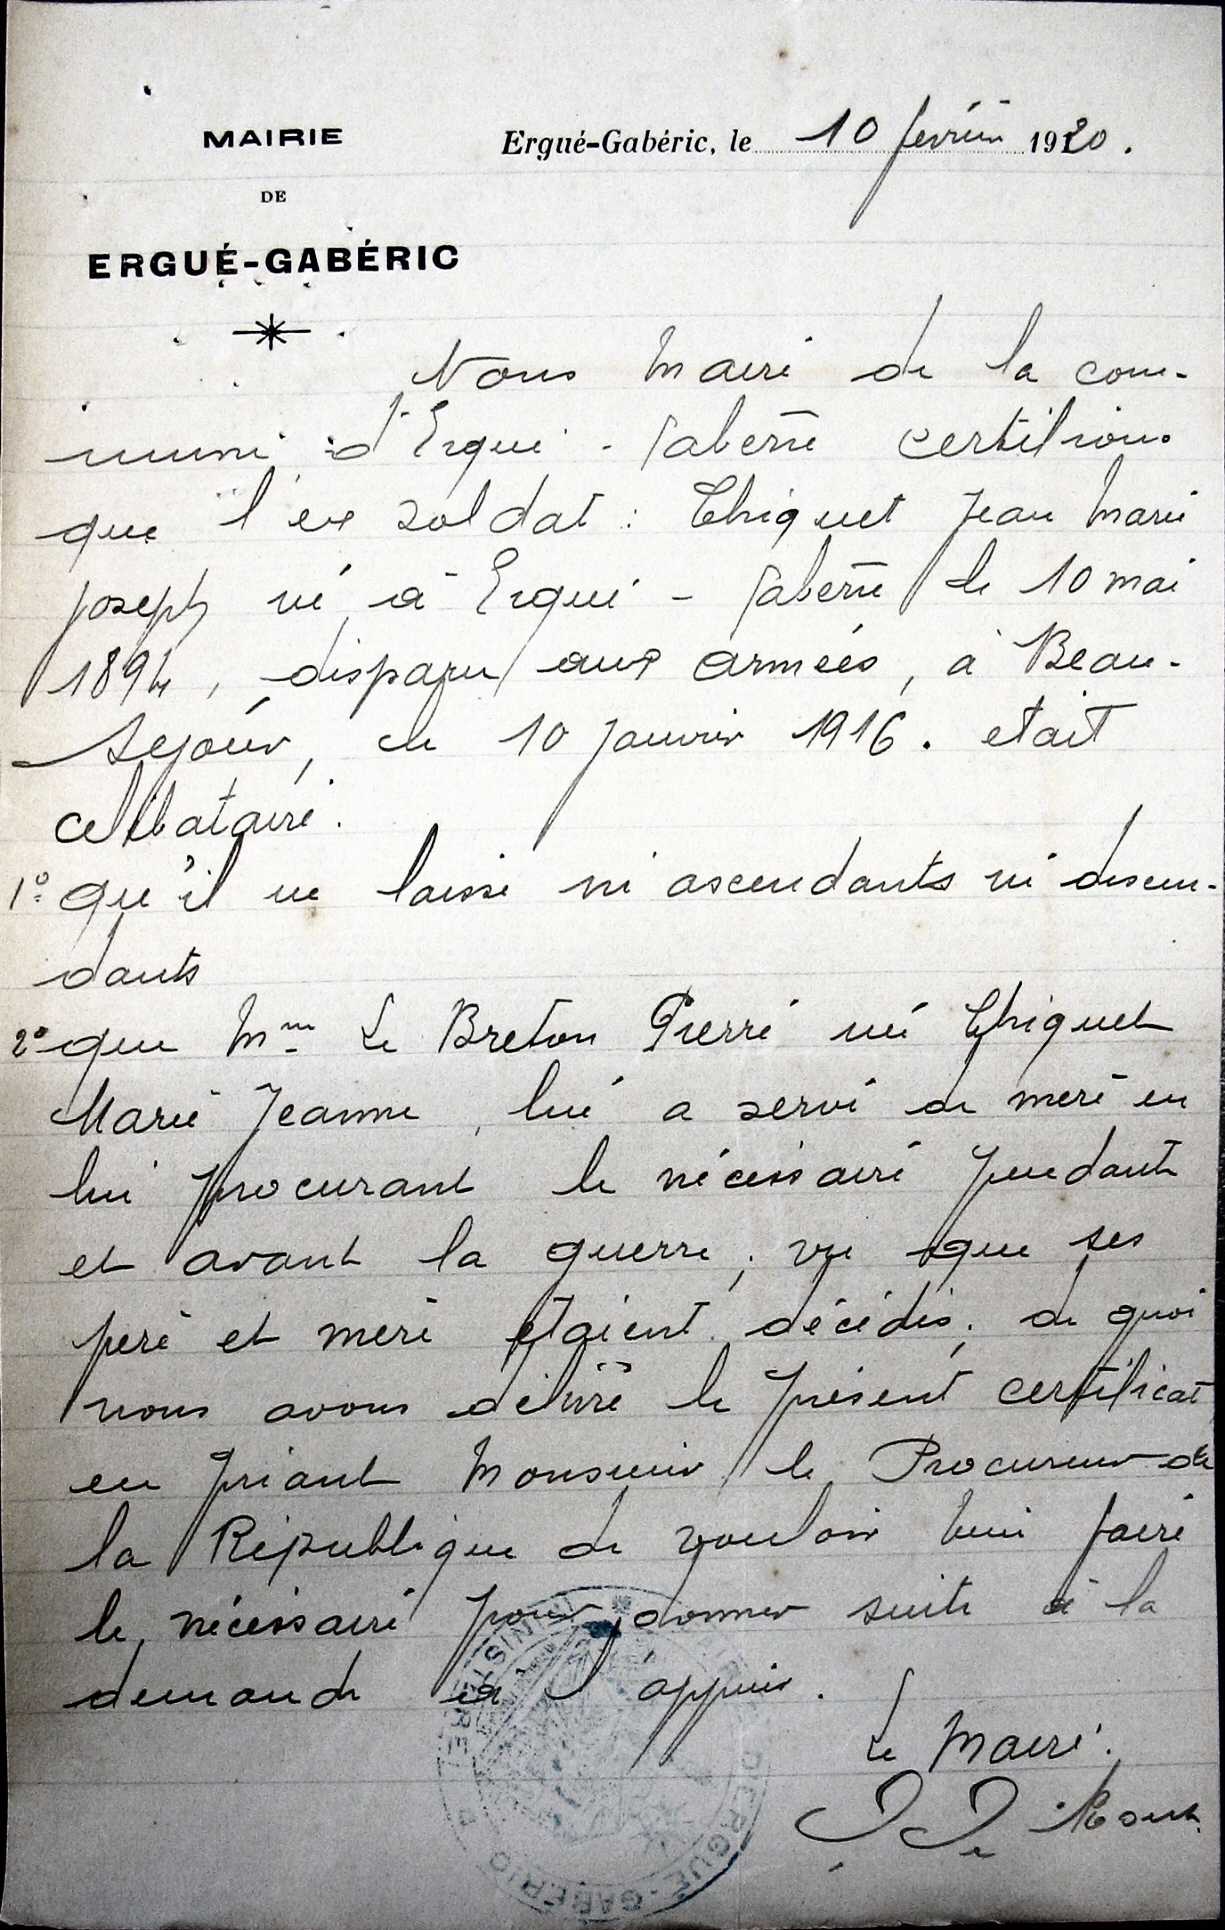 MAIRIE
DE
ERGUÉ-GABÉRIC
Ergué-Gabéric, le 10 février 1920.
Nous Maire de la com-
mune d'Ergué-Gaberic certifions
que l'ex soldat : Thiquet Jean Marie
Joseph né à Ergué-Gaberic le 10 mai
1894, disparu aux armées, à Beau-
Séjour, le 10 Janvier 1916. etait
celibataire.
1° qu'il ne laisse ni ascendants ni descen-
dants
2° que Mme Le Breton Pierre née Thiquet
Marie Jeanne, lui a servi de mere en
lui procurant le nécessaire pendant
et avant la guerre, vu que ses
pere et mere étaient décédés; de quoi
nous avons délivré le présent certificat
en priant Monsieur le Procureur de
la République de vouloir bien faire
le nécessaire pour donner suite à la
demande à l'appui.
Le Maire.
MAIRIE D'ERGUÉ-GABÉRIC
FINISTERE